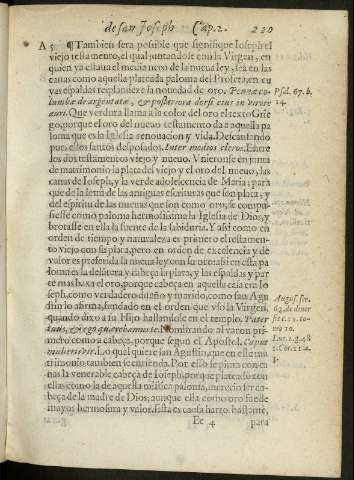 de san Ioseph Cap. 2. 220
A 5 ¶ Tambien sera possible que signifique Ioseph el
viejo testamento, el qual juntandose con la Virgen, en
quien ya estaua el medianero de la nueua ley, sea en las
canas como aquella plateada paloma del Profeta, en cu
yas espaldas resplandece la nouedad de oro. Pennæ co-
lumbæ deargentatæ, & posteriora dorsi eius in virore
auri. Que verdura llama a lo color del oro el texto Grie
go, porque el oro del nueuo testamento da a aquella pa
loma que es la Iglesia renouacion y vida. Descansando
pues ellos santos desposados. Inter medios cleros. Entre
los dos testamentos viejo y nueuo. Vnieronse en junta
de matrimonio la plata del viejo y el oro del nueuo, las
canas de Ioseph, y la verde adolescencia de Maria: para
que de la letra de las antiguas escrituras que son plata, y
del espiritu de las nueuas que son como oro, se compu-
siesse como paloma hermosissima la Iglesia de Dios, y
brotasse en ella la fuente de la sabiduria. Y assi como en
orden de tiempo y naturaleza es primero el testamen-
to viejo con su plata, pero en orden de excelencia y de
valor es preferida la nueua ley con su oro: assi en esta pa
loma es la delantera y cabeça la plata, y las espaldas y par
te mas baxa el oro, porque cabeça en aquella casa era Io
seph, como verdadero dueño y marido, como san Agus
tin lo afirma, fundado en el orden que vso la Virgen,
quando dixo a su Hijo hallandose en el templo. Pater
tuus, & ego quærebamus te. Nombrando al varon pri-
mero como a cabeça, porque segun el Apostol, Caput
mulieris vir. Lo qual quiere san Agustin, que en este ma
trimonio tambien se entienda. Por esso se pinta con ca-
nas la venerable cabeça de Ioseph, porque plateado con
ellas como la de aquella mistica paloma, merecio ser ca-
beça de la madre de Dios; aunque ella como oro fuesse de
mayor hermosura y valor. Esta es causa harto bastante,
Ee 4 para
Psal. 67. b.
14.
August. ser.
63. de diuer
sis c. 11. to-
mo 10.
Luc. 2. g. 48
1. Cor. 11. a.
3.